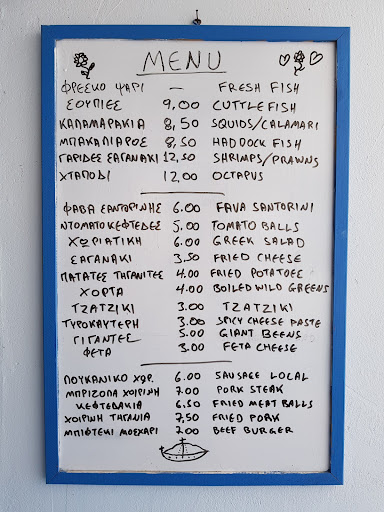 MENU
ΦΡΕΣΚΟ ΨΑΡΙ — FRESH FISH
ΣΟΥΠΙΕΣ 9,00 CUTTLEFISH
ΚΑΛΑΜΑΡΑΚΙΑ 8,50 SQUIDS/CALAMARI
ΜΠΑΚΑΛΙΑΡΟΣ 8,50 HADDOCK FISH
ΓΑΡΙΔΕΣ ΣΑΓΑΝΑΚΙ 12,50 SHRIMPS/PRAWNS
ΧΤΑΠΟΔΙ 12,00 OCTAPUS
ΦΑΒΑ ΣΑΝΤΟΡΙΝΗΣ 6.00 FAVA SANTORINI
ΝΤΟΜΑΤΟΚΕΦΤΕΔΕΣ 5.00 TOMATO BALLS
ΧΩΡΙΑΤΙΚΗ 6.00 GREEK SALAD
ΣΑΓΑΝΑΚΙ 3,50 FRIED CHEESE
ΠΑΤΑΤΕΣ ΤΗΓΑΝΙΤΕΣ 4.00 FRIED POTATOES
ΧΟΡΤΑ 4.00 BOILED WILD GREENS
ΤΖΑΤΖΙΚΙ 3.00 TZATZIKI
ΤΥΡΟΚΑΥΤΕΡΗ 3.00 SPICY CHEESE PASTE
ΓΙΓΑΝΤΕΣ 5.00 GIANT BEENS
ΦΕΤΑ 3.00 FETA CHEESE
ΛΟΥΚΑΝΙΚΟ ΧΩΡ. 6.00 SAUSAGE LOCAL
ΜΠΡΙΖΟΛΑ ΧΟΙΡΙΝΗ 7.00 PORK STEAK
ΚΕΦΤΕΔΑΚΙΑ 6,50 FRIED MEAT BALLS
ΧΟΙΡΙΝΗ ΤΗΓΑΝΙΑ 7,50 FRIED PORK
ΜΠΙΦΤΕΚΙ ΜΟΣΧΑΡΙ 7.00 BEEF BURGER